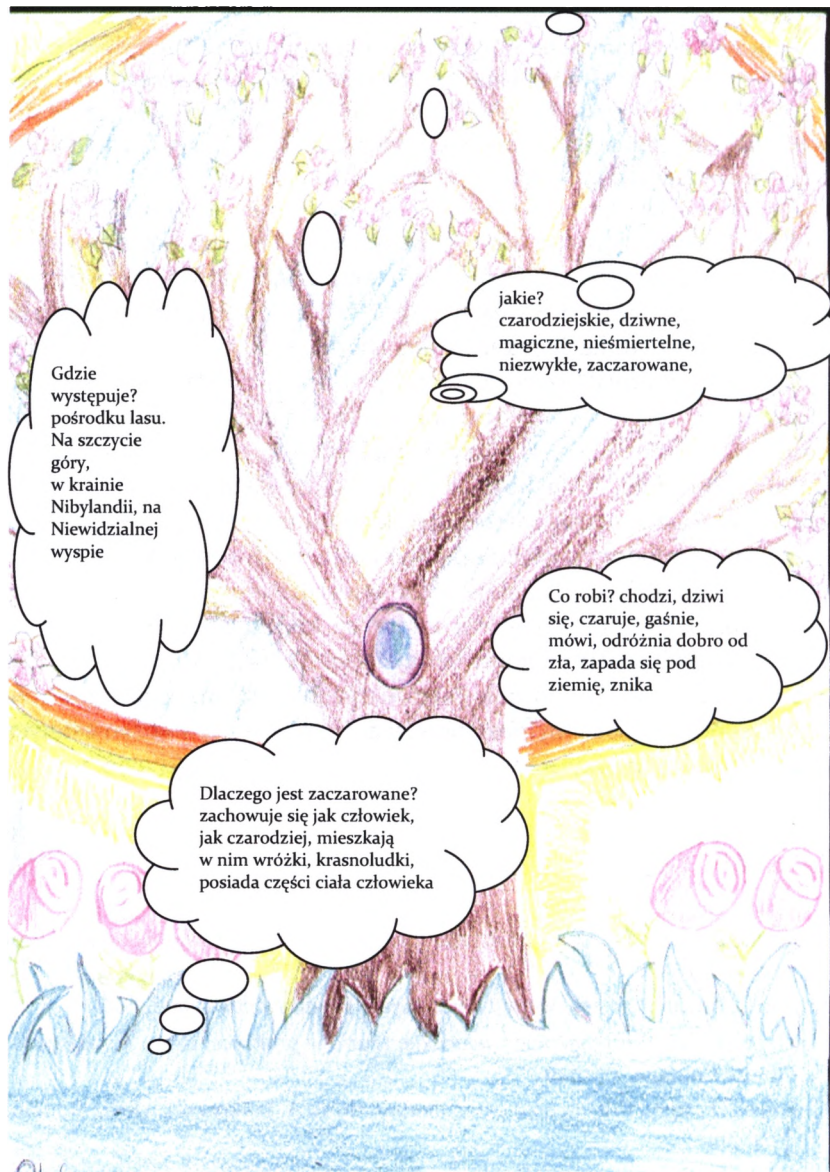 Gdzie
występuje?
pośrodku lasu.
Na szczycie
góry,
w krainie
Nibylandii, na
Niewidzialnej
wyspie
jakie?
czarodziejskie, dziwne,
magiczne, nieśmiertelne,
niezwykłe, zaczarowane,
Co robi? chodzi, dziwi
się, czaruje, gaśnie,
mówi, odróżnia dobro od
zła, zapada się pod
ziemię, znika
Dlaczego jest zaczarowane?
zachowuje się jak człowiek,
jak czarodziej, mieszkają
w nim wróżki, krasnoludki,
posiada części ciała człowieka